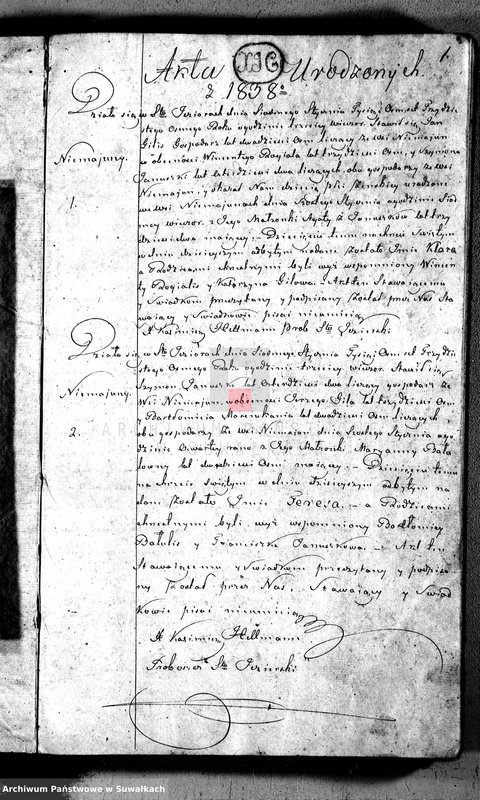 1.
Akta Urodzonych
z 1838:
Działo się w Stu Jeziorach dnia Siodmego Stycznia Tysiąc Osmset Trzydzie
stego Osmego Roku ogodzinie trzeciey wieczor. Stawił się Jan
Gilis Gospodarz lat dwadziescia Osm liczący ze wsi Niemajun
Niemajuny.
w obecnosci Wincentego lat trzydziesci Osm, y Szymona
Januszki lat czterdziesci dwa liczących, obu gospodarzy ze wsi
Niemajun, y okazał Nam dziecię płci żenskiey urodzone
1.
we wsi Niemajunach dnia Szostego Stycznia ogodzinie
wieczor, z Jego Małżonki Agaty z Januszkow lat trzy
dziescidwa maiącey. Dziecięciu temu na chrzcie Swiętym
w dniu dzisieyszym odbytym nadane zostało Imie Klara
a Rodzicami chrzestnymi byli wyż wspomniony Wincen
ty y Katarzyna Gilowa. Akt ten Stawaiącemu
y Swiadkom przeczytany y podpisany został przez Nas Sta
waiący y Swiadkowie pisać nieumieią
X Kazimierz Hillmann Prob Sto Jezierski
Działo się w Stu Jeziorach dnia Siodmego Stycznia Tysiąc Osmset Trzydzie
stego Osmego Roku ogodzinie trzeciey wieczor. Stawił się
Szymon Januszko lat czterdziesci dwa liczący gospodarz ze
Niemajuny.
Wsi Niemajun, w obecnosci Jerzego Gila lat trzydziesci Osm
y Bartłomieia lat dwadziesci Osm liczących
2.
obu gospodarzy ze wsi Niemajun dnia Szostego Stycznia ogo
dzinie czwartey rano z Jego Małżonki Maryanny
lat dwadziesci Osm maiącey. Dziecięciu temu
na chrzcie swiętym w dniu dzisieyszym odbytym na
dane zostało Imie Teresa, a Rodzicami
chrzestnymi byli wyż wspomniony Bartłomiey
y Franciszka Januszkowa. Akt ten
Stawaiącemu y Swiadkom przeczytany y podpisa
ny został przez Nas, Stawaiący y Swiad
kowie pisać nieumieią
X Kazimierz Hillmann
Proboszcz Sto Jezierski
Archiwum Państwowe w Suwałkach